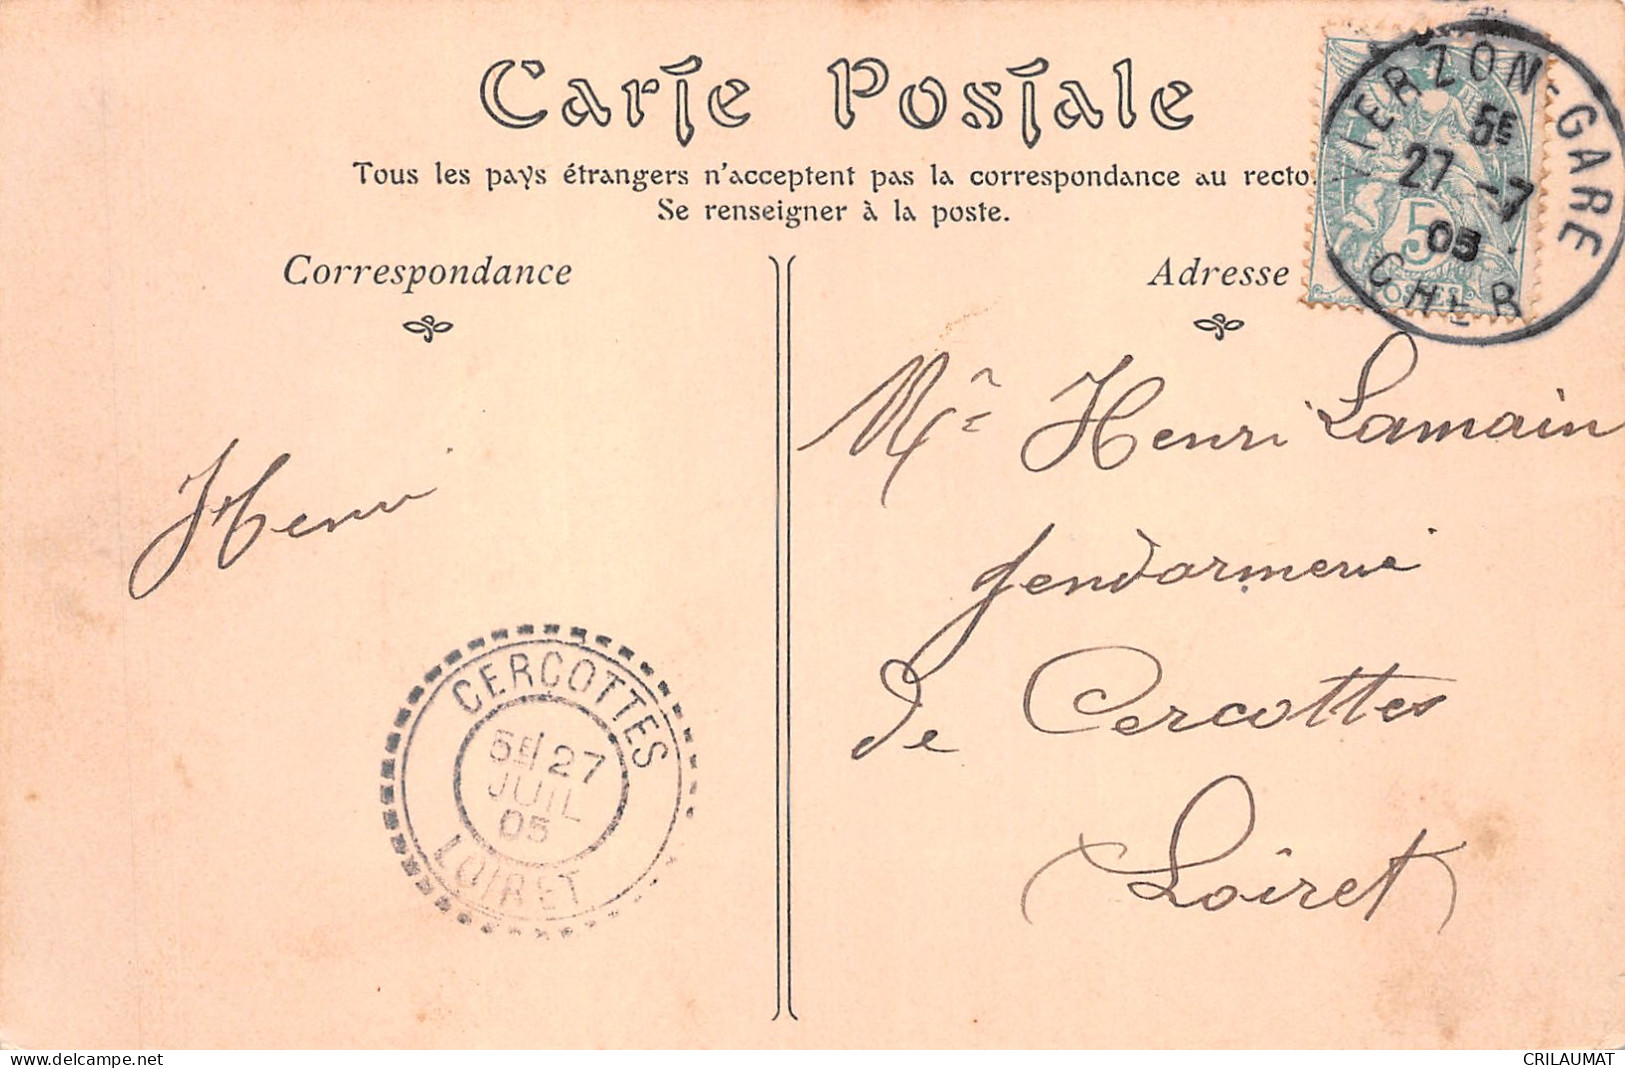 Carte Postale
Tous les pays étrangers n'acceptent pas la correspondance au recto.
Se renseigner à la poste.
Correspondance
Adresse
VIERZON-GARE
5E
27 -7
05
CHER
5
POSTES
Mr Henri Lamain
Gendarmerie
de Cercottes
(Loiret)
Henri
CERCOTTES
5E 27
JUIL
05
LOIRET
www.delcampe.net
CRILAUMAT